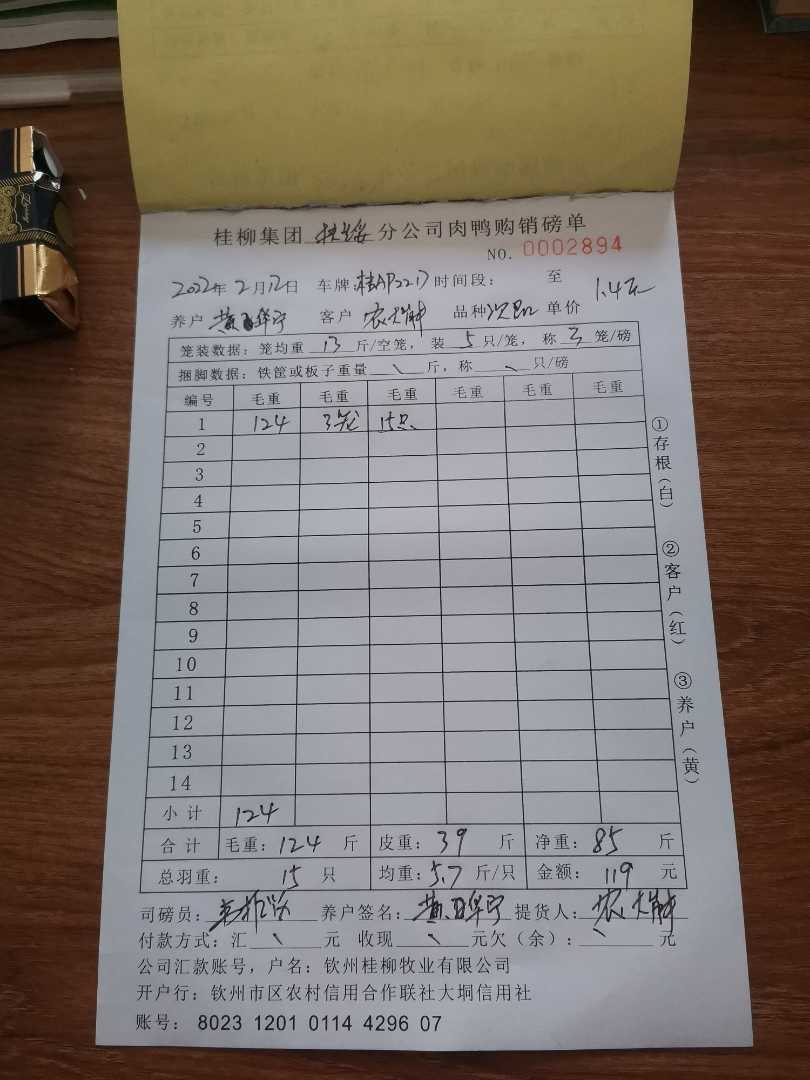 桂柳集团 扶绥 分公司肉鸭购销磅单
NO. 0002894
2022年 2月12日 车牌:桂AP2217 时间段: 至
养户 黄 宁 客户 农大 品种 次品 单价 1.4元
笼装数据:笼均重 13 斤/空笼, 装 5 只/笼, 称 3 笼/磅
捆脚数据:铁筐或板子重量 \ 斤,称 \ 只/磅
编号 毛重 毛重 毛重 毛重 毛重 毛重
1 124 3笼 15只
2
3
4
5
6
7
8
9
10
11
12
13
14
小计 124
合计 毛重:124 斤 皮重:39 斤 净重:85 斤
总羽重: 15 只 均重:5.7 斤/只 金额: 119 元
司磅员: 养户签名:黄 宁 提货人:农大
付款方式:汇 \ 元 收现 \ 元欠(余): \ 元
公司汇款账号,户名:钦州桂柳牧业有限公司
开户行:钦州市区农村信用合作联社大垌信用社
账号: 8023 1201 0114 4296 07
①存根(白)
②客户(红)
③养户(黄)